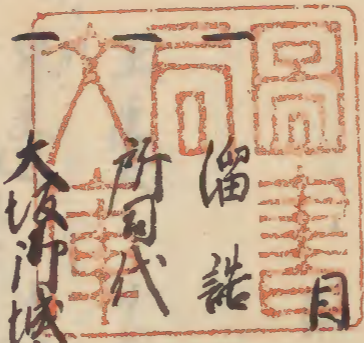 目
一 溜詰
一 所司代
一 大坂御城